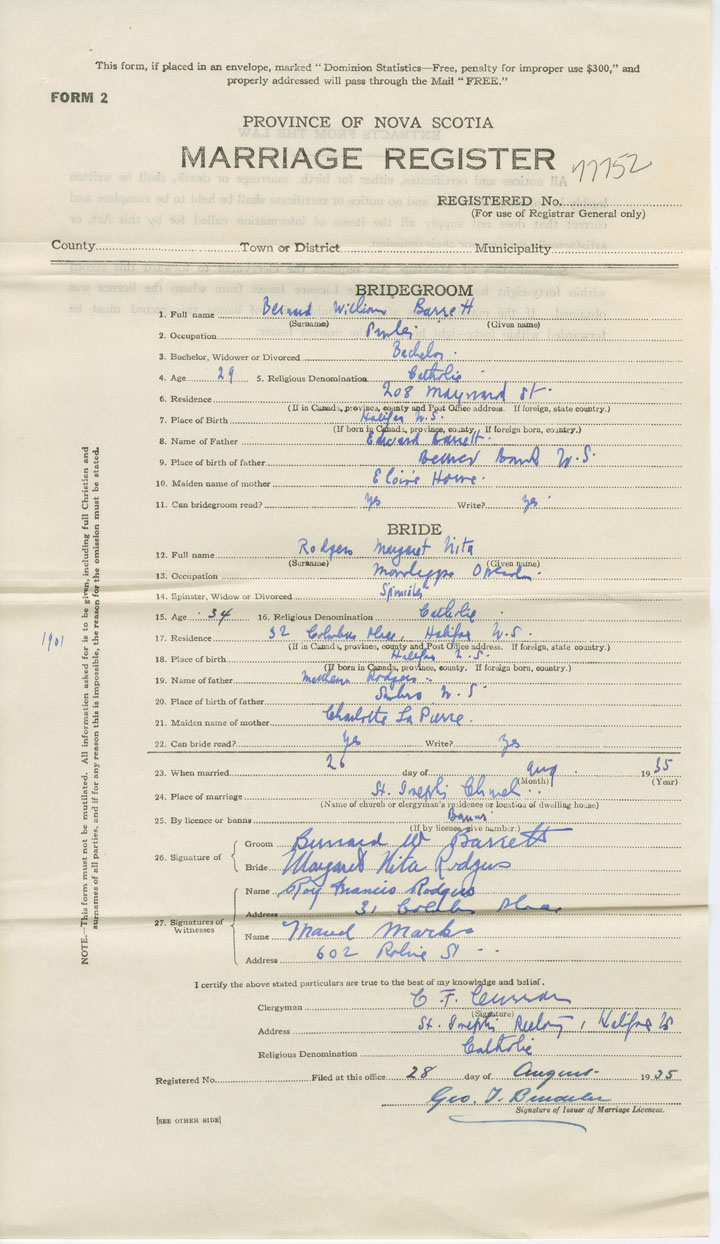 This form, if placed in an envelope, marked "Dominion Statistics—Free, penalty for improper use $300," and
properly addressed will pass through the Mail "FREE."
FORM 2
PROVINCE OF NOVA SCOTIA
MARRIAGE REGISTER
77752
REGISTERED No.
(For use of Registrar General only)
County Town or District Municipality
BRIDEGROOM
1. Full name Bernard William Barrett
(Surname) (Given name)
2. Occupation
3. Bachelor, Widower or Divorced Bachelor.
4. Age 29 5. Religious Denomination Catholic
6. Residence 208 Maynard St.
(If in Canada, province, county and Post Office address. If foreign, state country.)
7. Place of Birth Halifax N.S.
(If born in Canada, province, county. If foreign born, country.)
8. Name of Father Edward Barrett
9. Place of birth of father Beaver Bank N.S.
10. Maiden name of mother Howe
11. Can bridegroom read? Yes Write? Yes
BRIDE
12. Full name Rodgers Margaret Rita
(Surname) (Given name)
13. Occupation
14. Spinster, Widow or Divorced Spinster
15. Age 34 16. Religious Denomination Catholic
17. Residence 32 Columbus Place, Halifax N.S.
(If in Canada, province, county and Post Office address. If foreign, state country.)
18. Place of birth Halifax N.S.
(If born in Canada, province, county. If foreign born, country.)
19. Name of father Matthew Rodgers
20. Place of birth of father Sambro N.S.
21. Maiden name of mother Charlotte La Pierre.
22. Can bride read? Yes Write? Yes
23. When married 26 day of Aug. 1935
(Month) (Year)
24. Place of marriage St. Joseph's Church
(Name of church or clergyman's residence or location of dwelling house)
25. By licence or banns Banns
(If by licence give number.)
26. Signature of
Groom Bernard W Barrett
Bride Margaret Rita Rodgers
27. Signatures of Witnesses
Name Roy Francis Rodgers
Address 31 Columbus Place
Name Maud Marks
Address 602 Robie St
I certify the above stated particulars are true to the best of my knowledge and belief.
Clergyman C. F. Curran
(Signature)
Address St. Joseph's Rectory, Halifax NS
Religious Denomination Catholic
Registered No. Filed at this office 28 day of August 1935
Geo. T.
Signature of Issuer of Marriage Licences.
[SEE OTHER SIDE]
NOTE.—This form must not be mutilated. All information asked for is to be given, including full Christian and
surnames of all parties, and if for any reason this is impossible, the reason for the omission must be stated.
1901